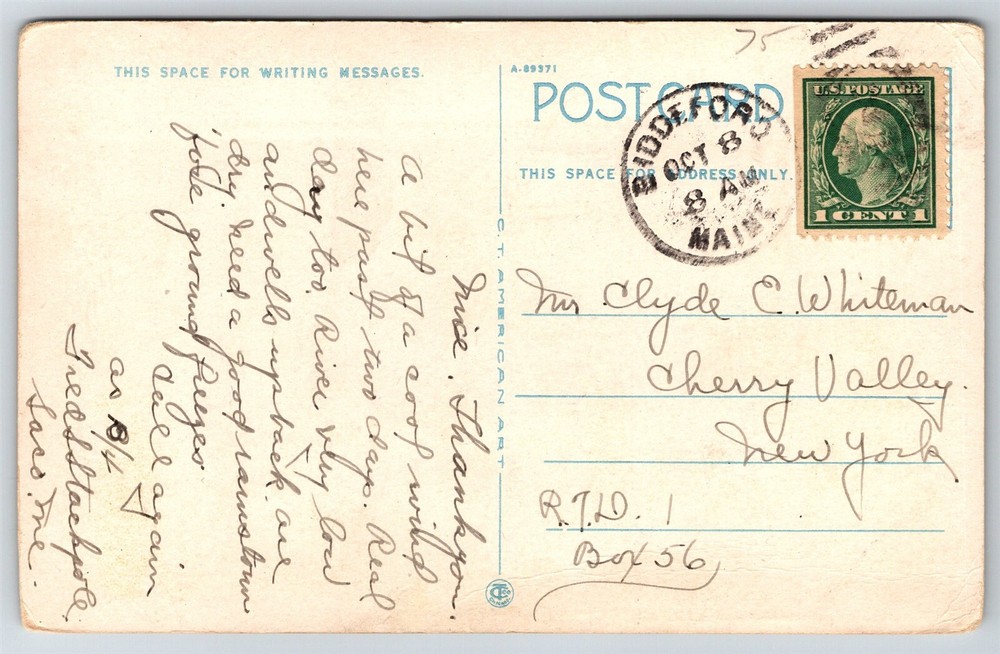 75
THIS SPACE FOR WRITING MESSAGES.
A-89371
POST CARD
THIS SPACE FOR ADDRESS ONLY.
BIDDEFORD
OCT 8
8 AM
MAINE
U.S. POSTAGE
1 CENT 1
C.T. AMERICAN ART
Nice. Thank you.
A bit of a cool wind
here past two days. Real
day too. River very low
and wells up back are
dry. Need a good rainstorm
fore ground freezes
Call again
as B/4
Fred Stackpole
Saco. Me.
Mr. Clyde E. Whiteman
Cherry Valley.
New York
R.F.D. 1
Box 56